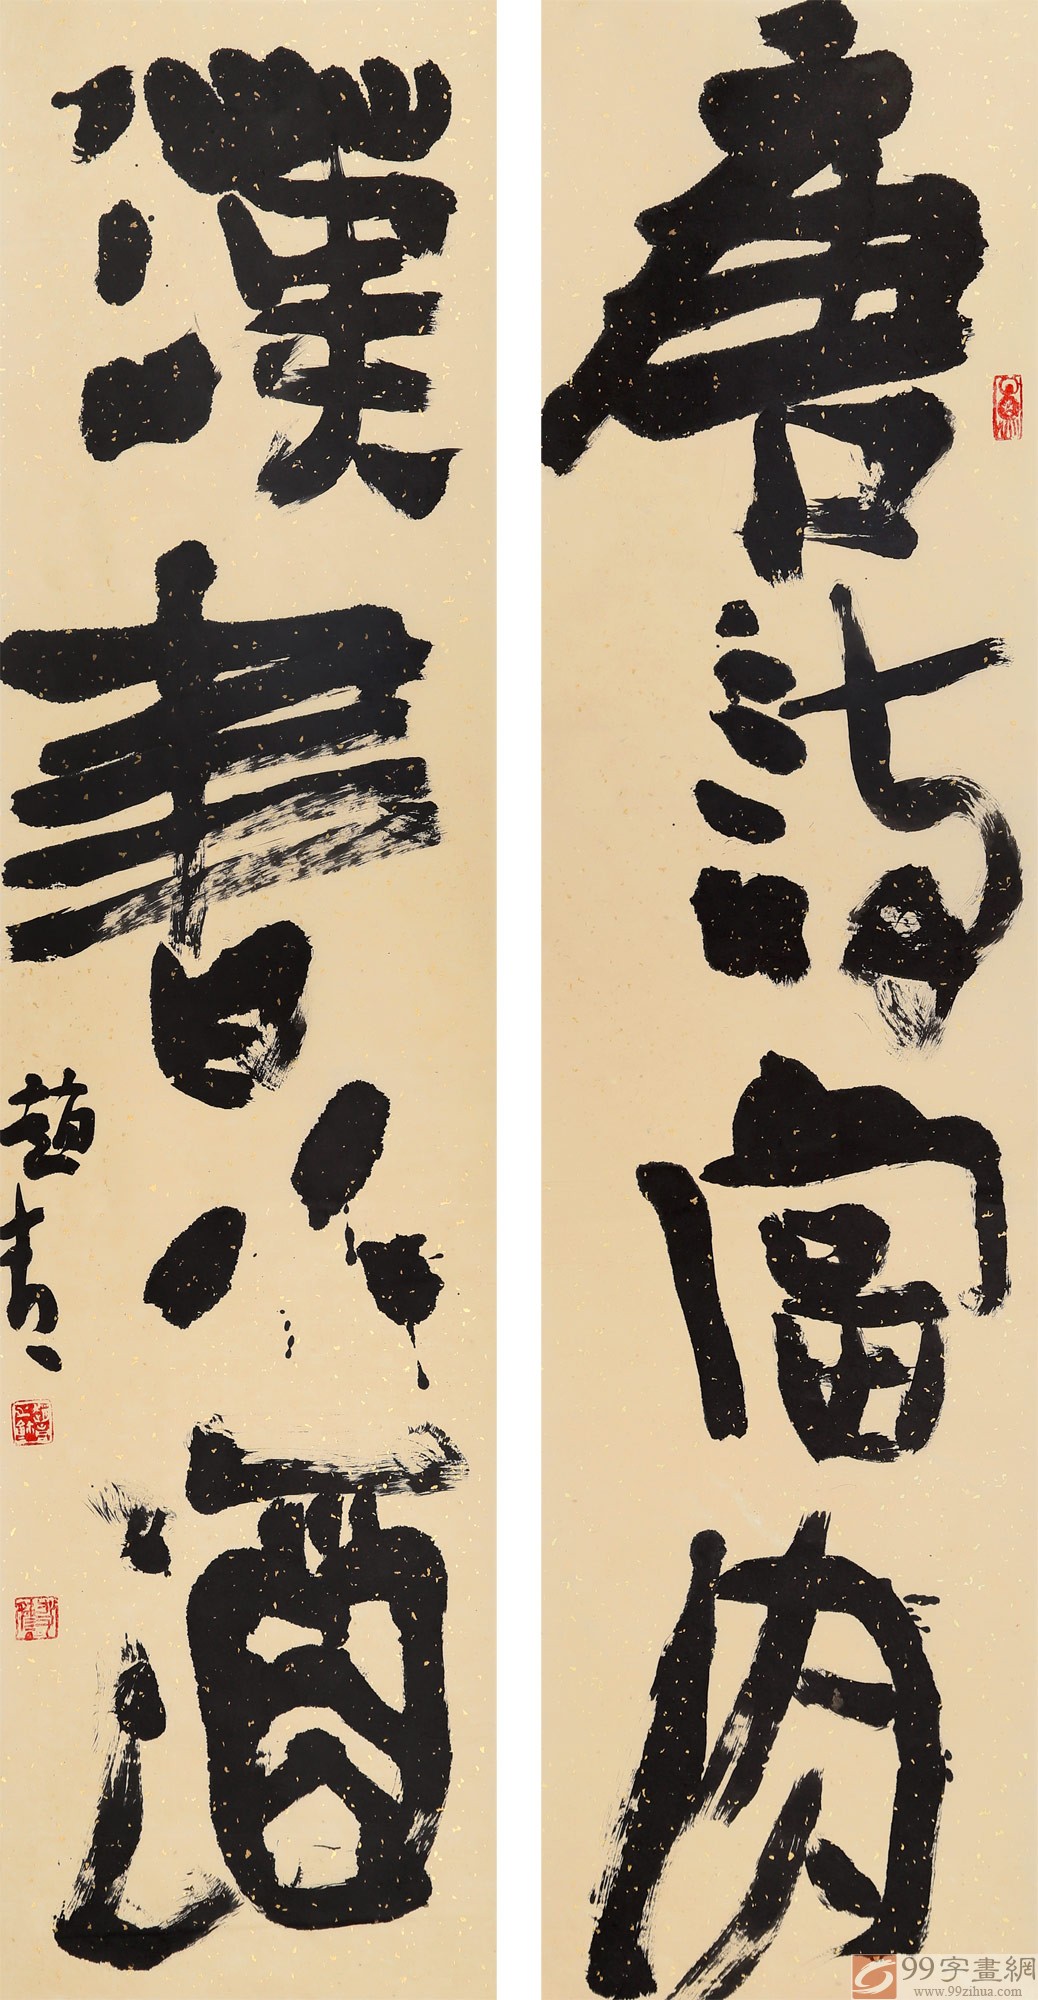 唐詩當肉
漢書 酒
趙青
99字畫網
www.99zihua.com